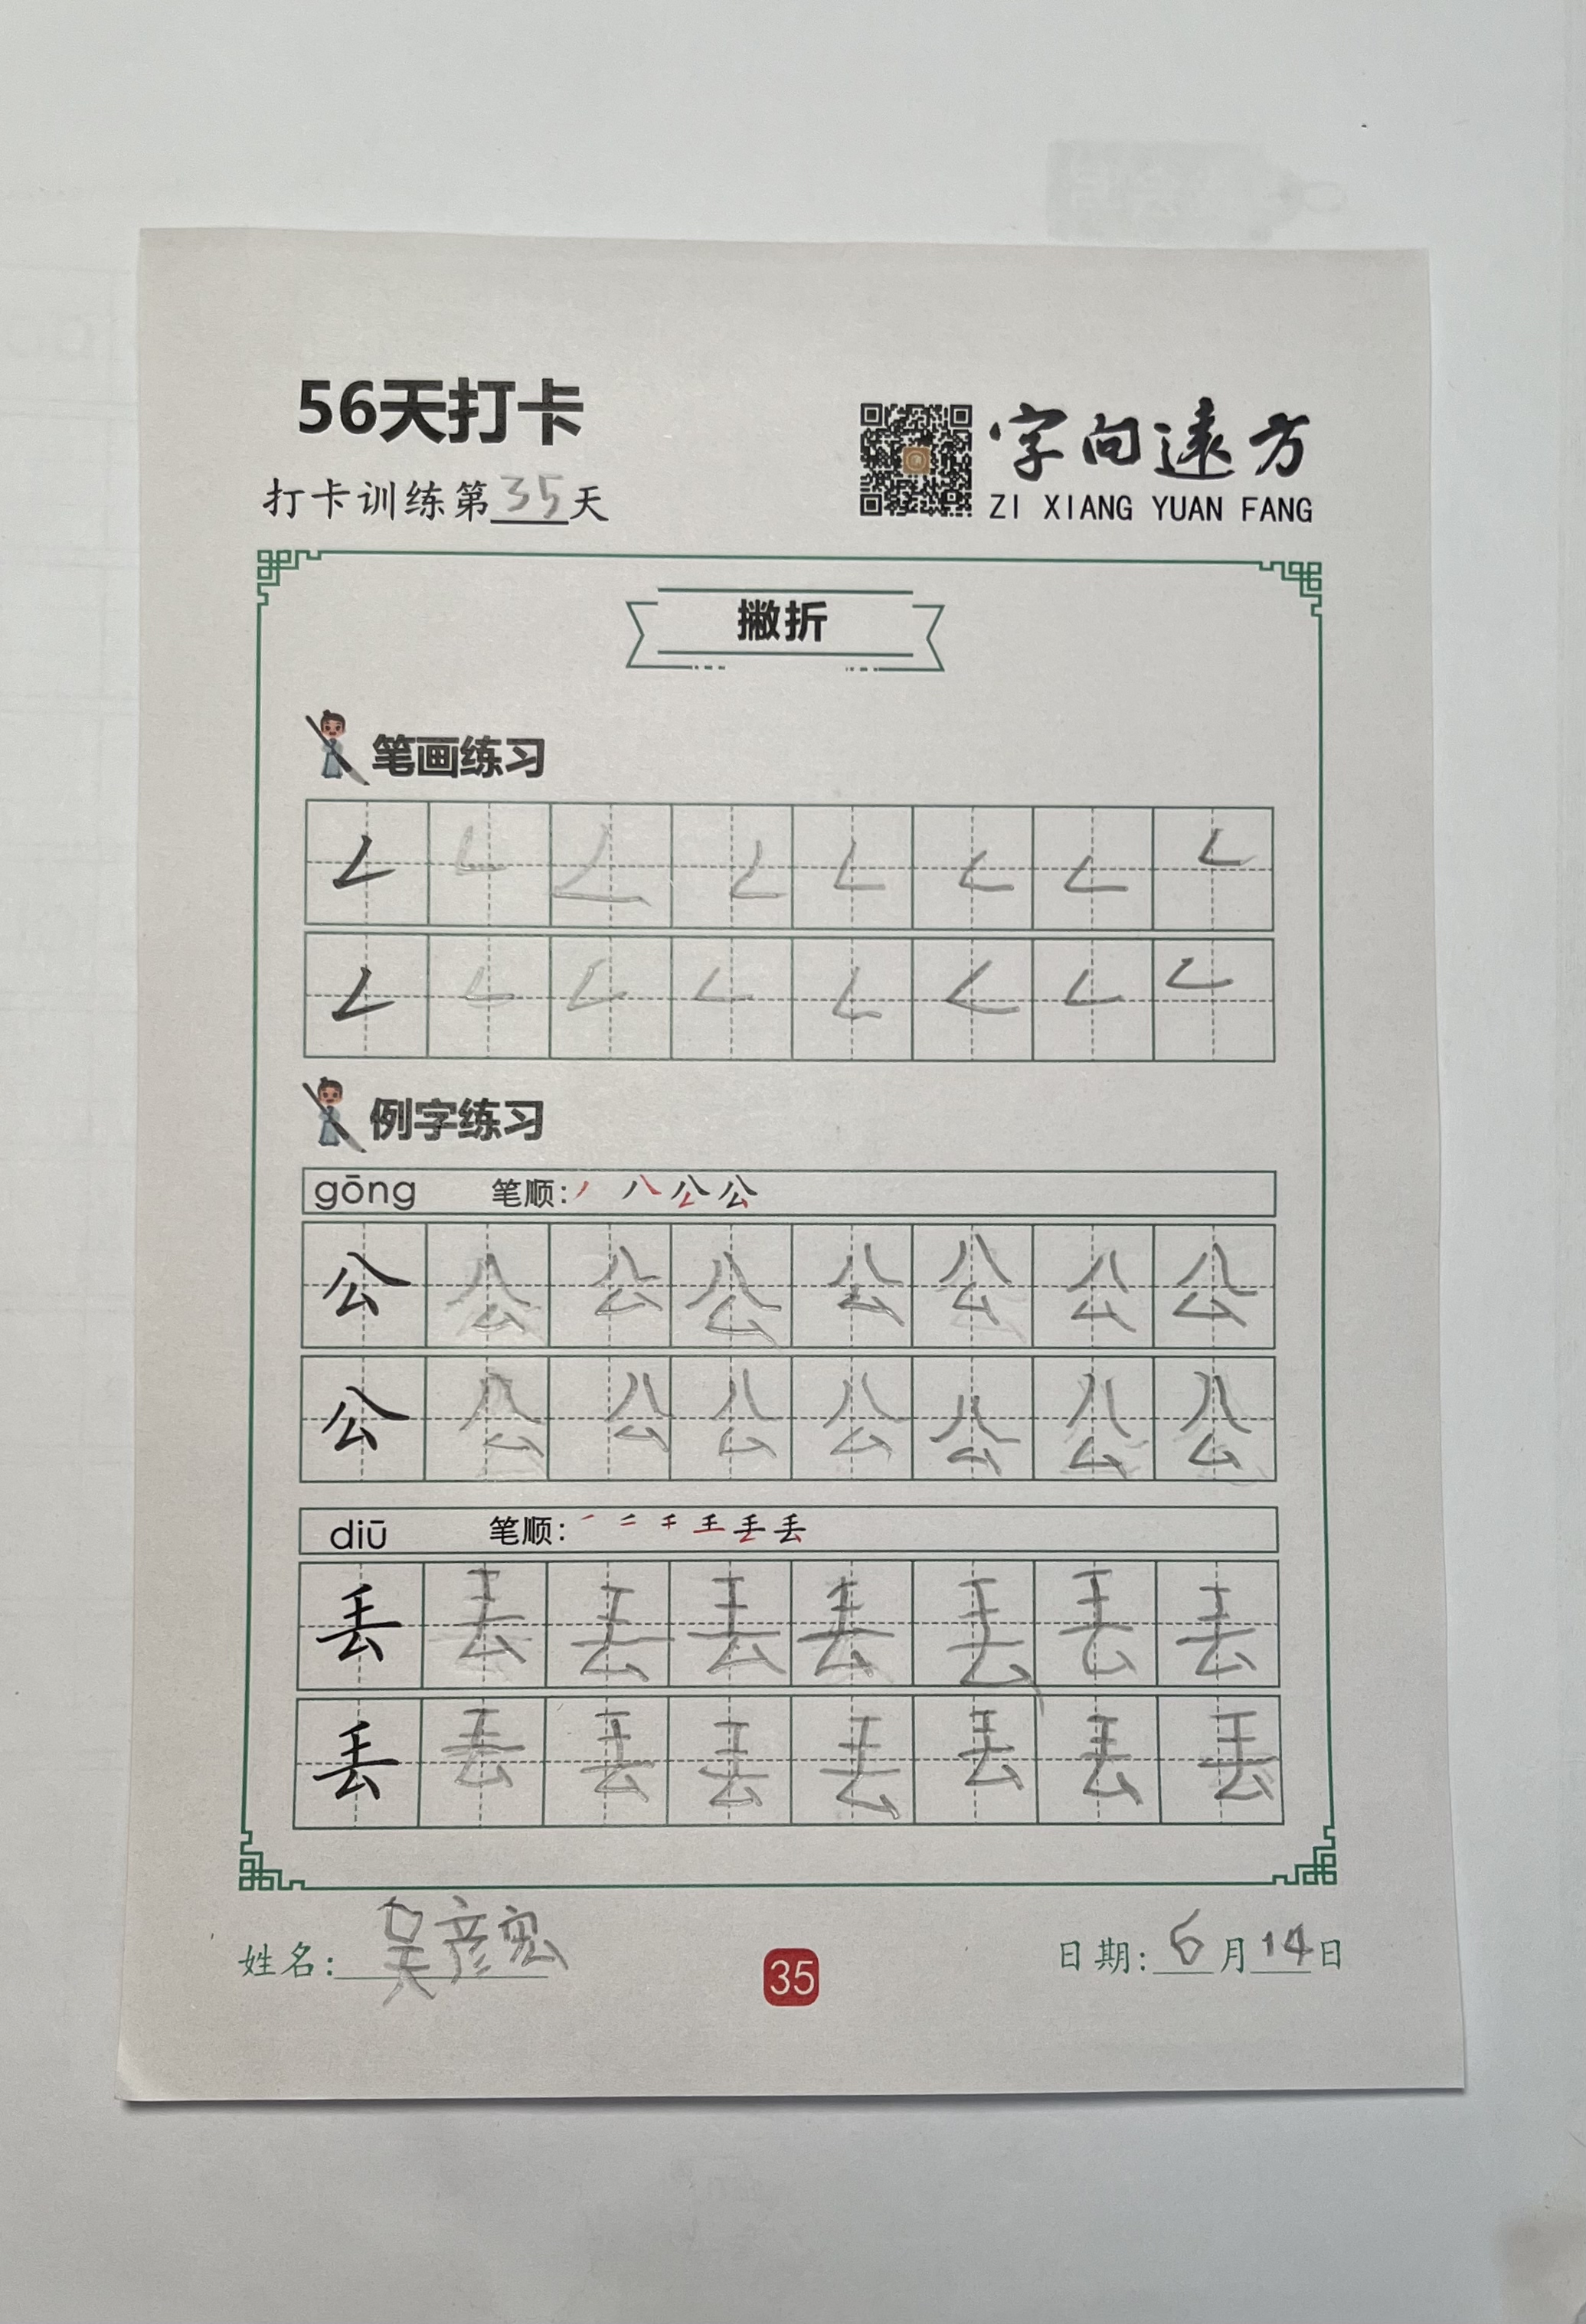 56天打卡
打卡训练第35天
字向遠方
ZI XIANG YUAN FANG
撇折
笔画练习
例字练习
gōng 笔顺: 公
公 公 公 公 公 公 公 公
公 公 公 公 公 公 公 公
diū 笔顺: 丢
丢 丢 丢 丢 丢 丢 丢 丢
丢 丢 丢 丢 丢 丢 丢 丢
姓名: 吴彦宏
35
日期: 6月14日